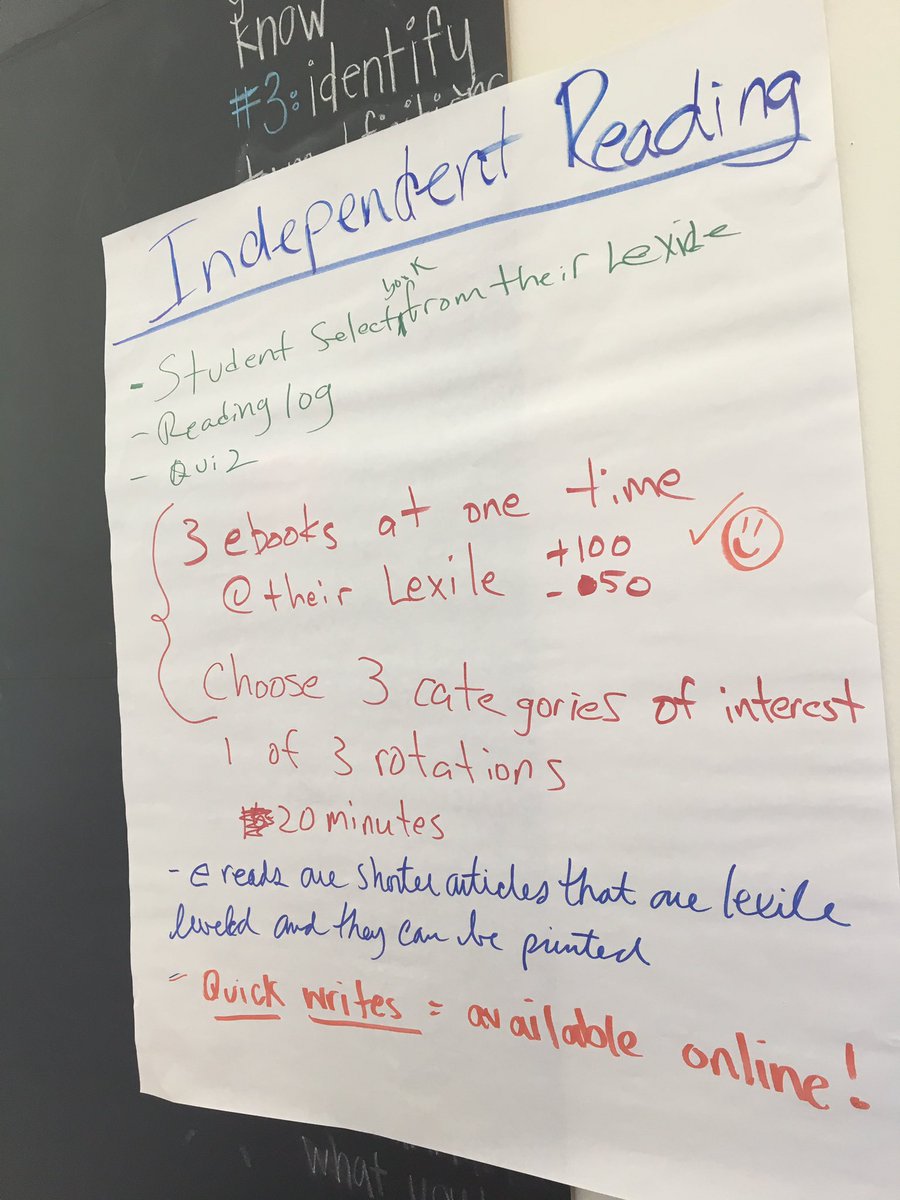 know
#3: identify
Independent Reading
- Student Select book from their Lexile
- Reading log
- Quiz
3 ebooks at one time
@ their Lexile +100
- 050
Choose 3 categories of interest
1 of 3 rotations
20 minutes
- e reads are shorter articles that are lexile
leveled and they can be printed
- Quick writes = available online!
what you